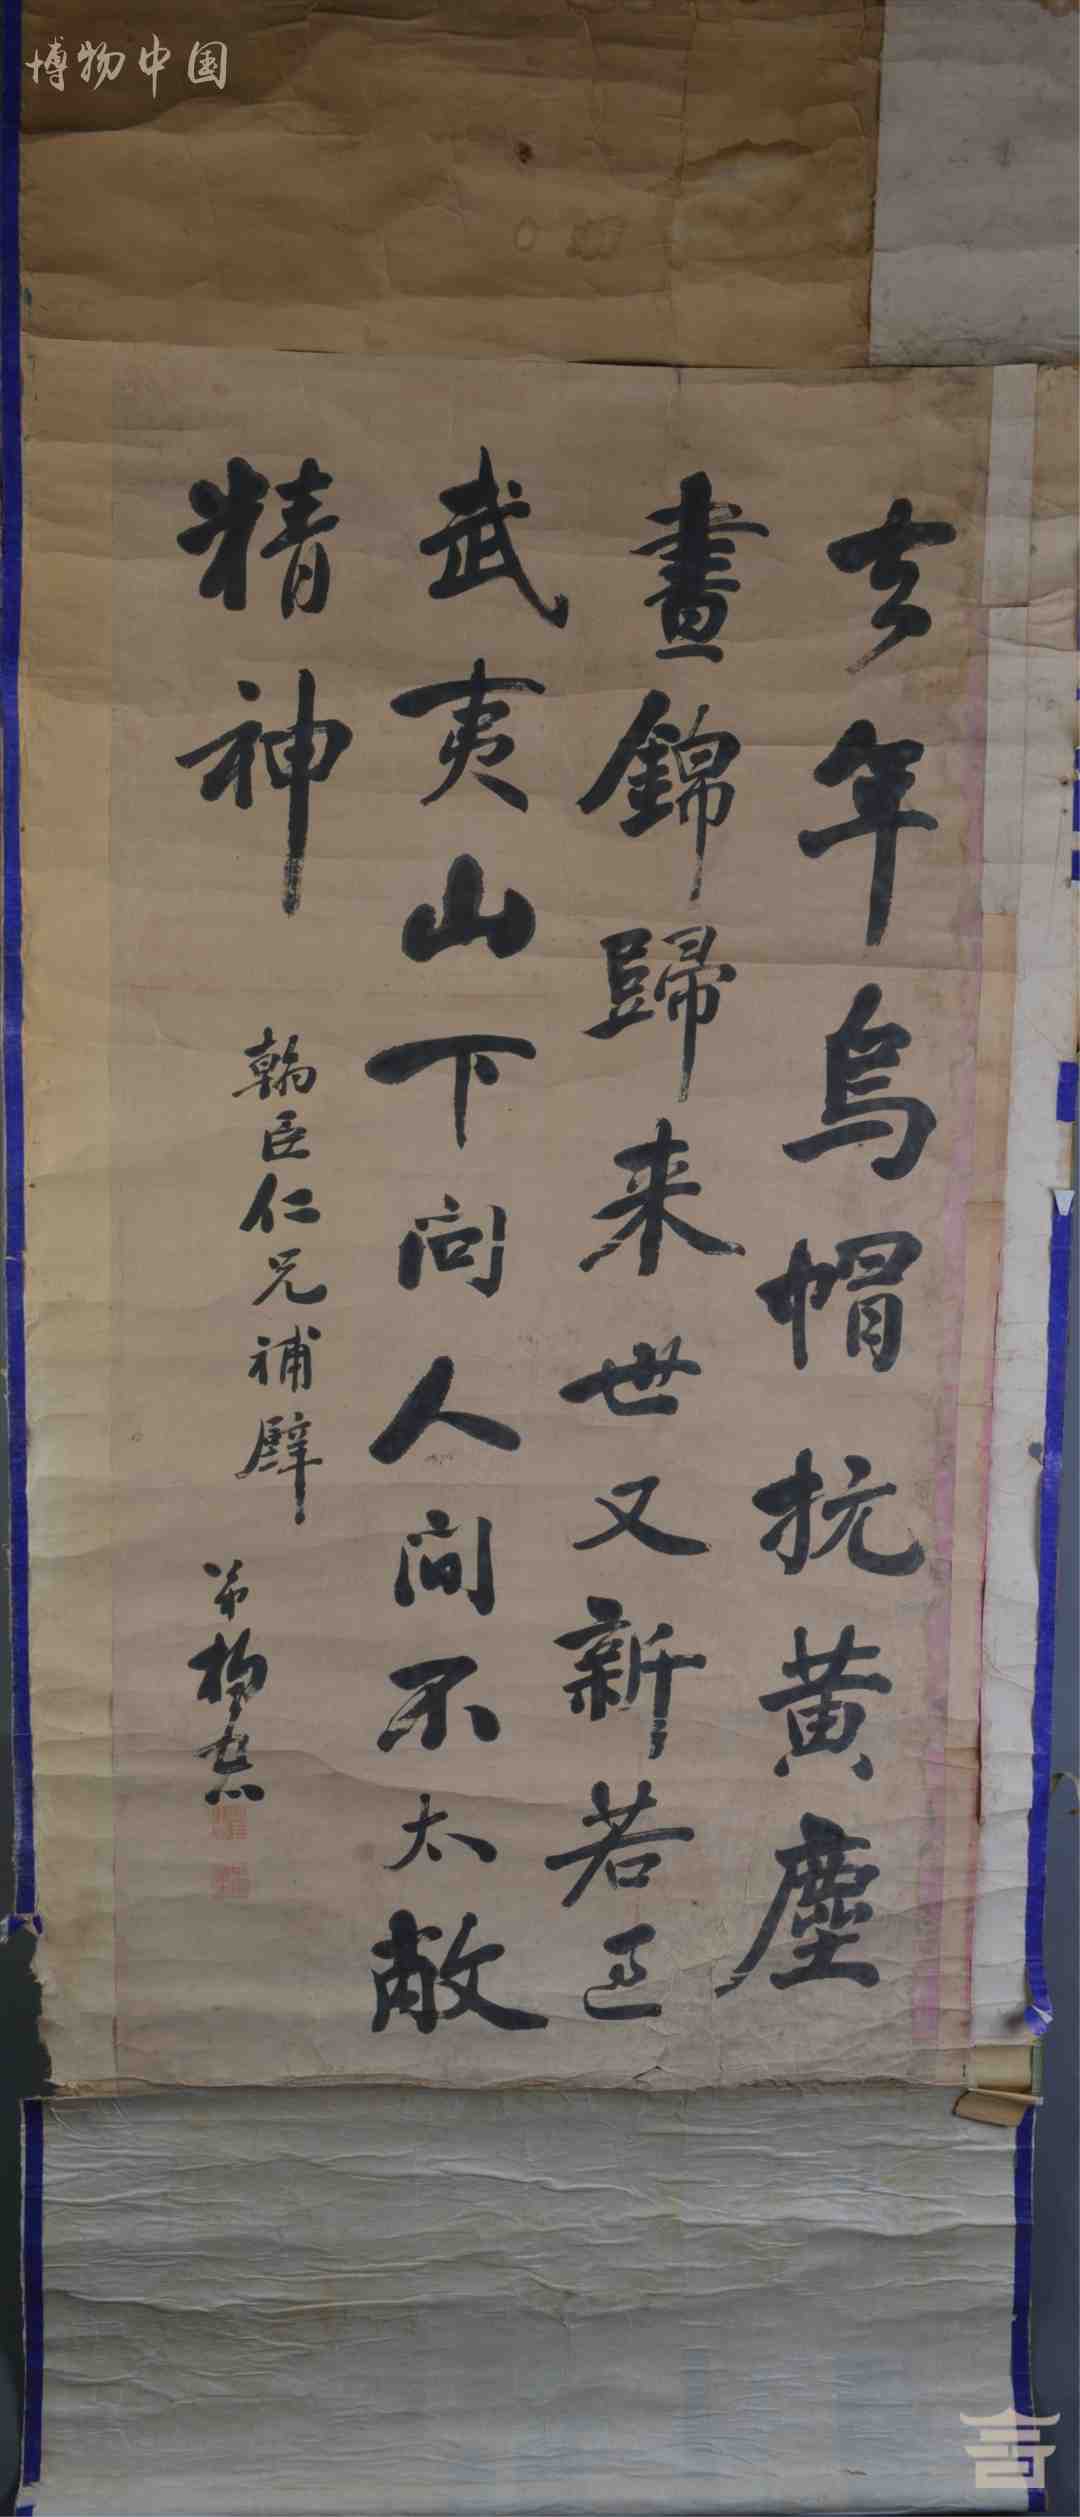 博物中国
去年烏帽抗黄塵
晝錦歸来世又新若遇
武夷山下問人間不太敝
精神
翰臣仁兄補壁
弟楊